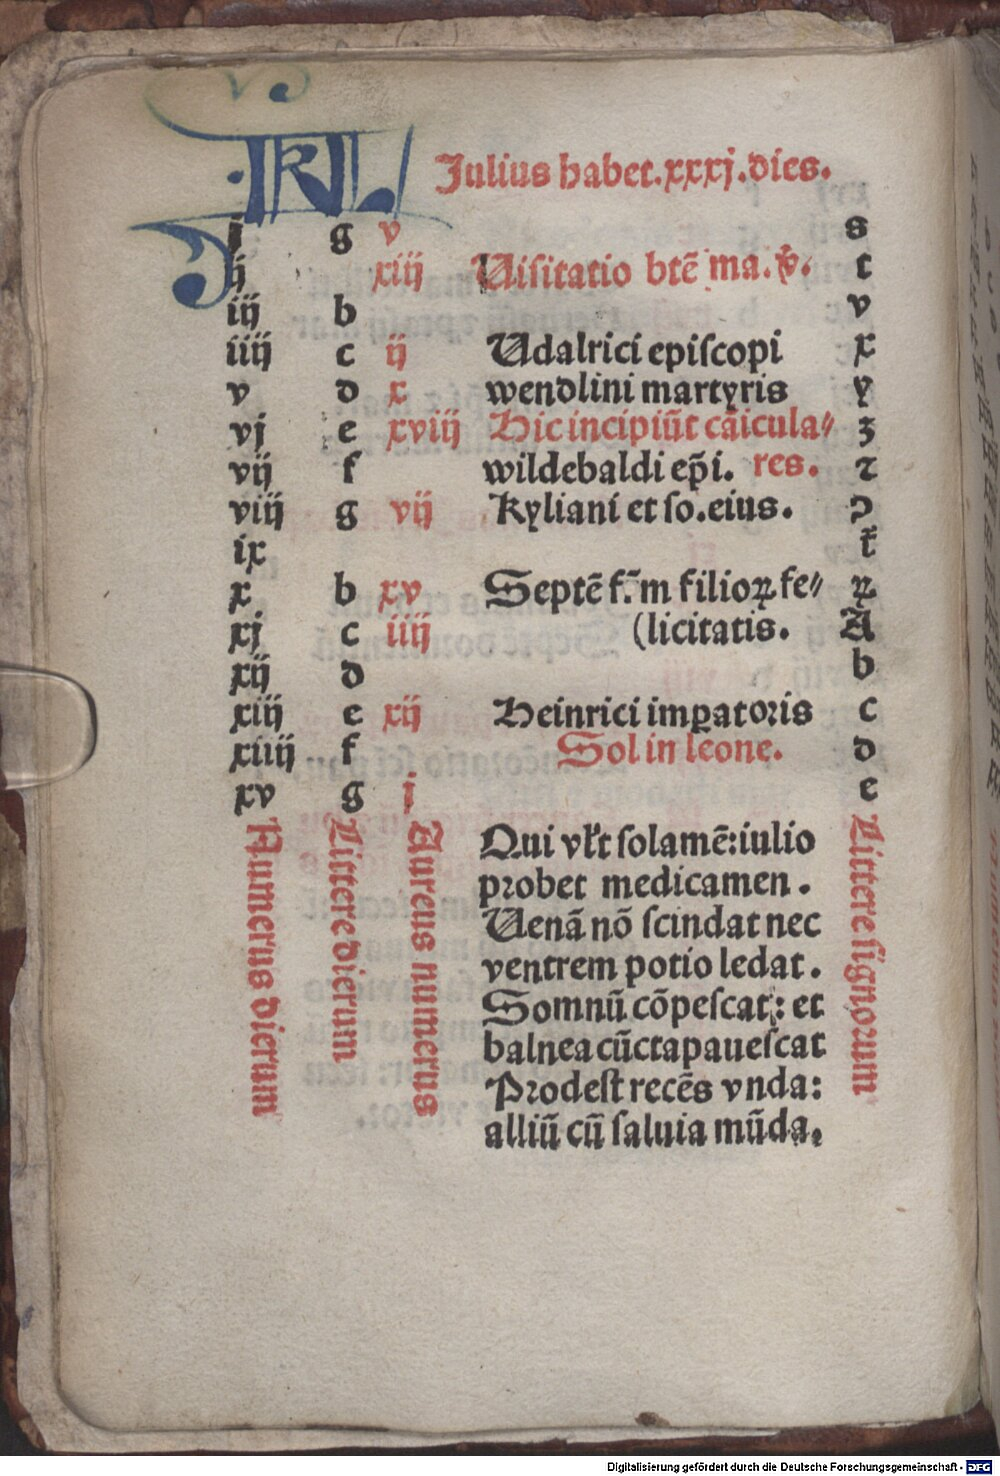 KL Julius habet.xxxj.dies.
i g v s
ij xiij Uisitatio btē ma.v̄. t
iij b v
iiij c ij Udalrici episcopi x
v d x wendlini martyris y
vj e xviij Hic incipiūt cāicula⸗ z
vij f wildebaldi ep̄i. res. ⁊
viij g vij Kyliani et so.eius. ꝯ
ix t̄
x b xv Septē f.̄m filioꝝ fe⸗ ꝝ
xj c iiij (licitatis. A
xij d b
xiij e xij Heinrici imꝑatoris c
xiiij f Sol in leone. d
xv g i e
Numerus dierum
Littere dierum
Aureus numerus
Qui vl̓t solamē:iulio
probet medicamen.
Uenā nō scindat nec
ventrem potio ledat.
Somnū cōpescat: et
balnea cūcta pauescat
Prodest recēs vnda:
alliū cū saluia mūda.
Littere signorum
Digitalisierung gefördert durch die Deutsche Forschungsgemeinschaft - DFG